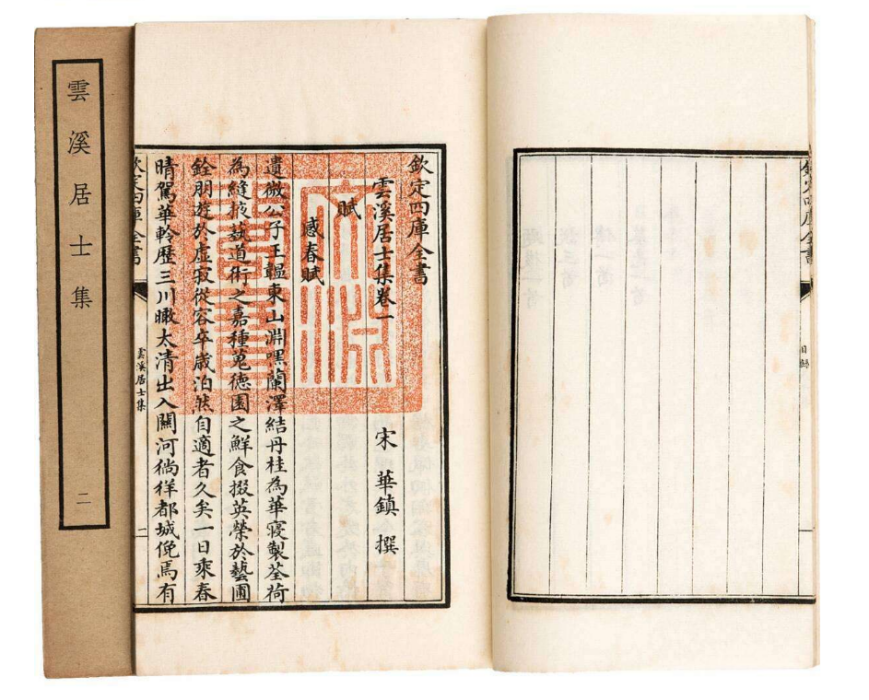 雲溪居士集
二
欽定四庫全書
雲溪居士集卷一
宋 華鎮 撰
賦
感春賦
遺微公子王韞東山淵嘿蘭澤結丹桂為華寢製荃荷
為縫掖茇道術之嘉種蒐德園之鮮食掇英榮於藝圃
銓朋遊於虛寂從容卒歲泊然自適者久矣一日乘春
晴駕華軨歷三川瞰太清出入關河徜徉都城俛焉有
欽定四庫全書
雲溪居士集
一
文淵閣寶
欽定四庫全書
目錄